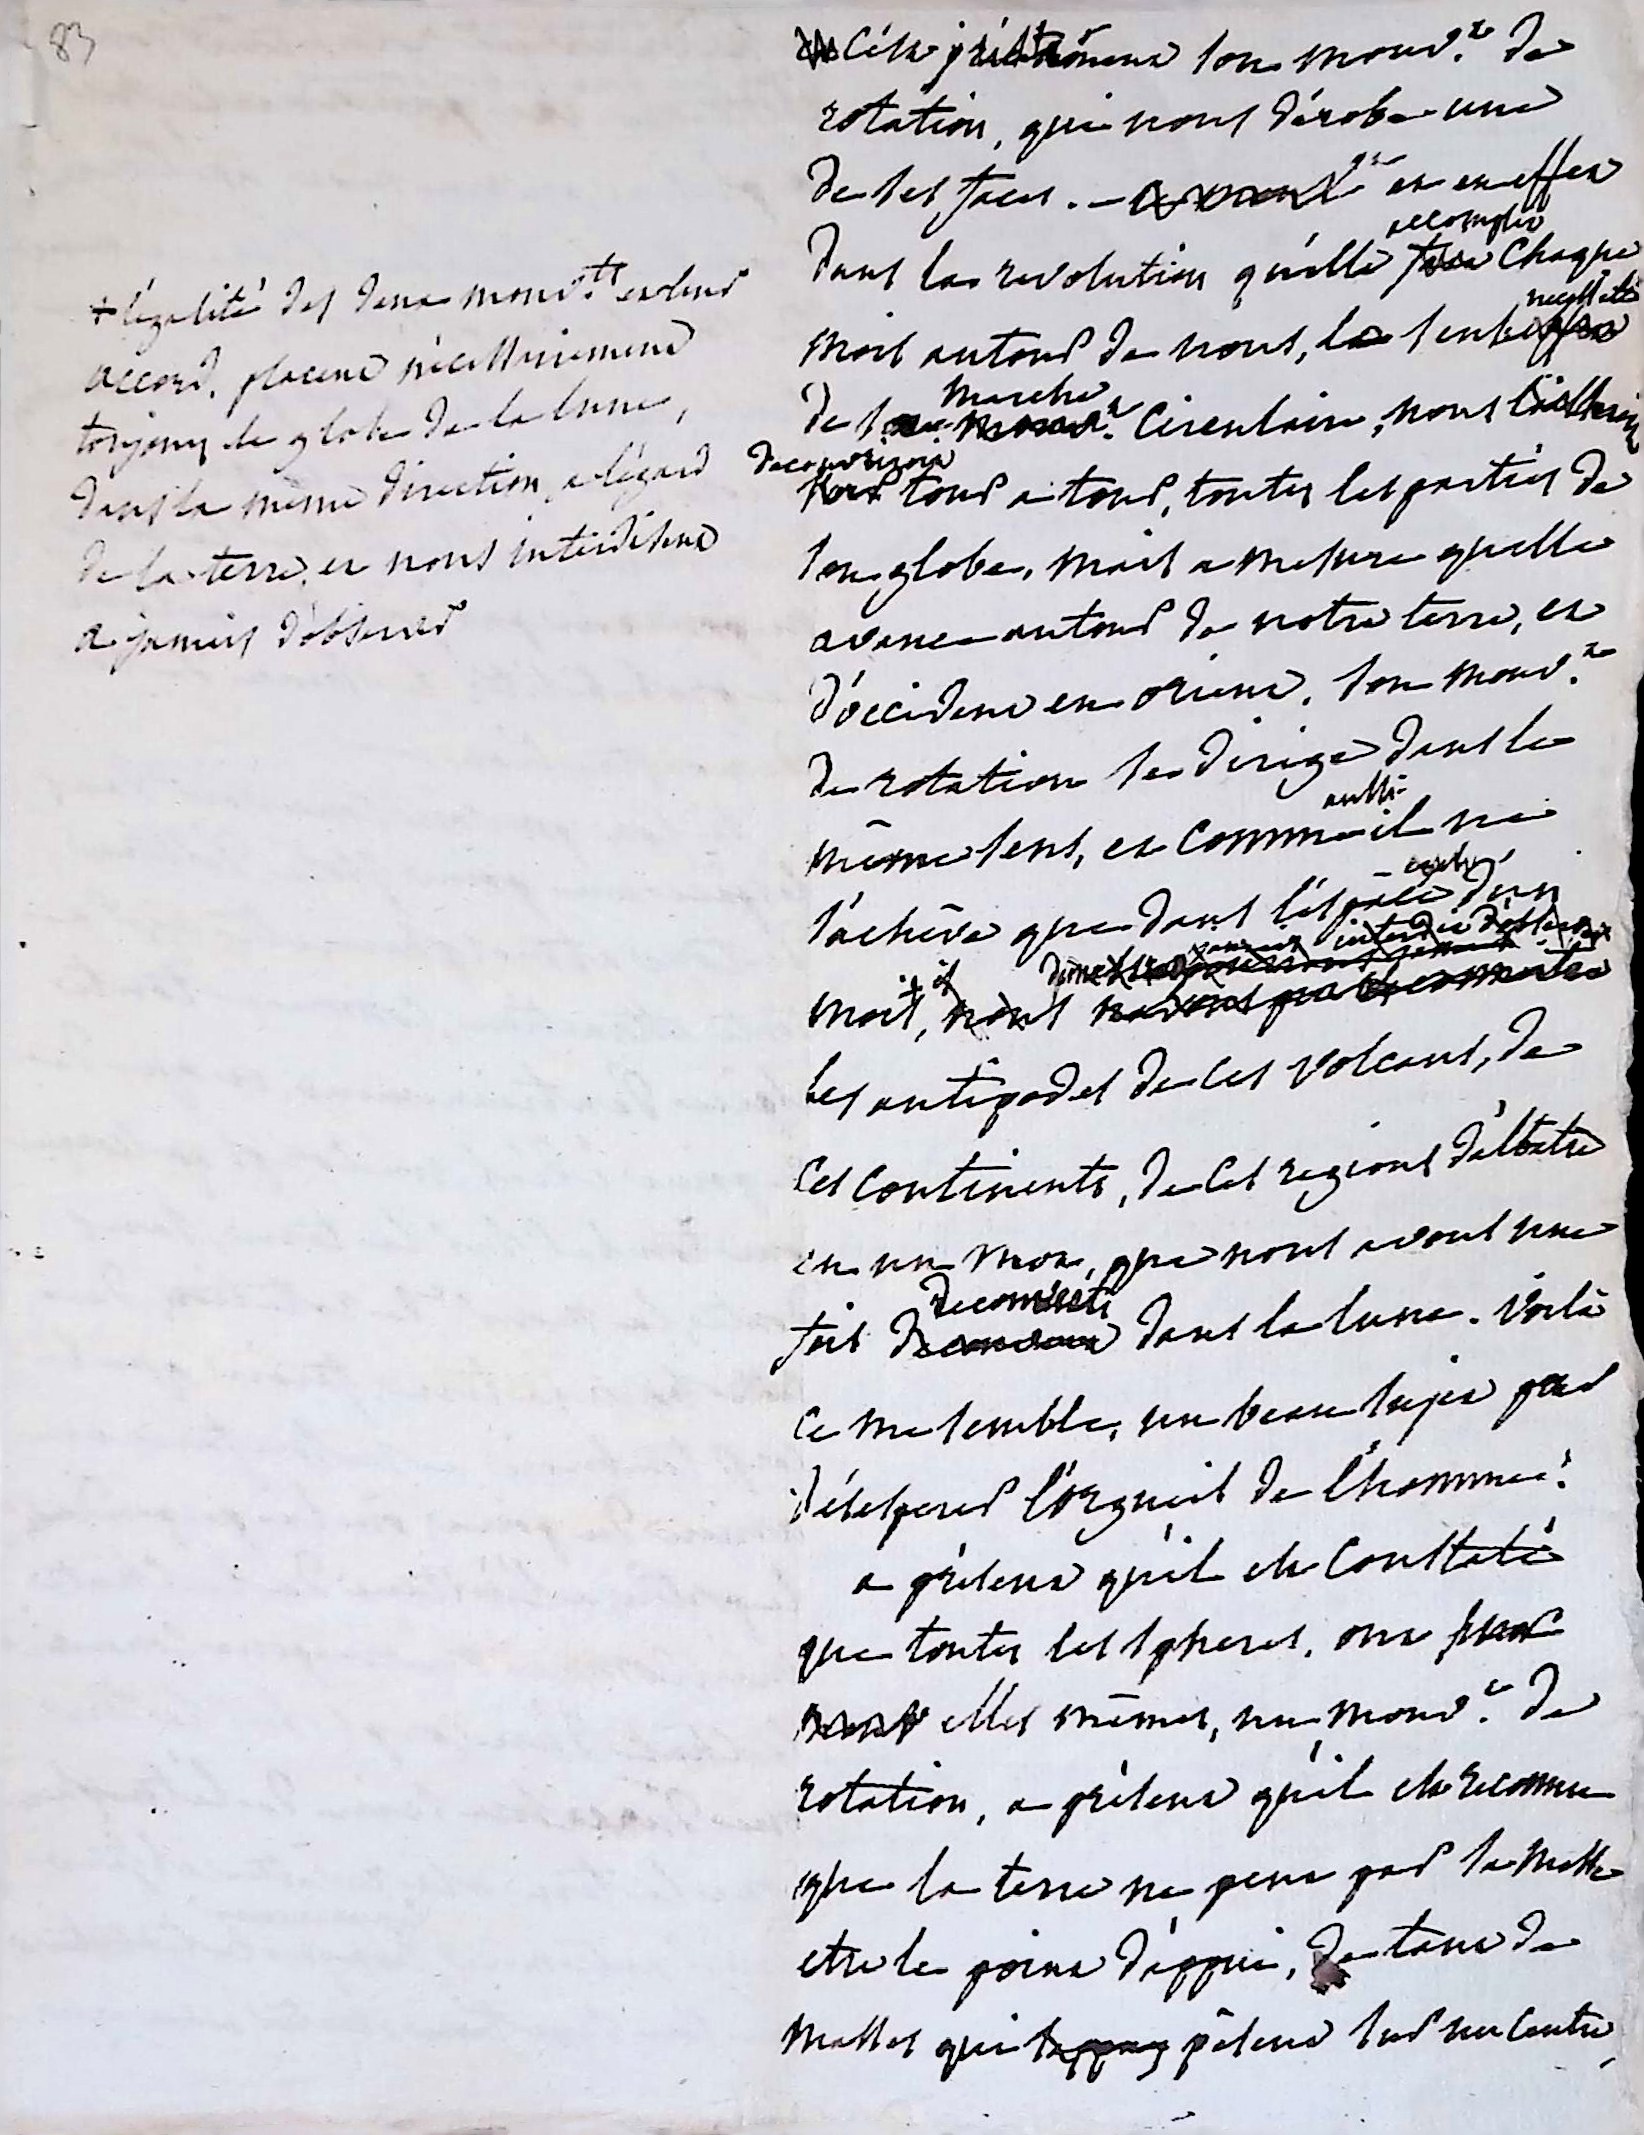 83
c'est précisement son mouv.t de
rotation, qui nous dérobe une
de ses faces. - et en effet
dans la revolution qu'elle accomplit chaque
mois autour de nous, la seule necessité
de sa marche circulaire, nous
decouvriroit tour a tour, toutes les parties de
son globe, mais a mesure quelle
avance autour de notre terre, et
d'occident en orient, son mouv.t
de rotation se dirige dans le
même sens, et comme aussi il ne
s'achève que dans l'éspace d'un
mois,
les antipodes de ces volcans, de
ces continents, de ces regions d'albâtre
en un mot, que nous avons une
fois dans la lune. voilà
ce me semble, un beau sujet pour
désesperer l'órgueil de l'homme.
a présent qu'il est constaté
que toutes les spheres, ont sur
elles mêmes, un mouv.t de
rotation, a présent qu'il est reconnu
que la terre ne peut par sa masse
etre le point d'appui, de tant de
masses qui pèsent sur un centre,
+ l'égalité des deux mouv.ts et leur
accord, placent nécessairement
toujours le globe de la lune,
dans la même direction, a l'égard
de la terre, et nous interdisent
a jamais d'observer